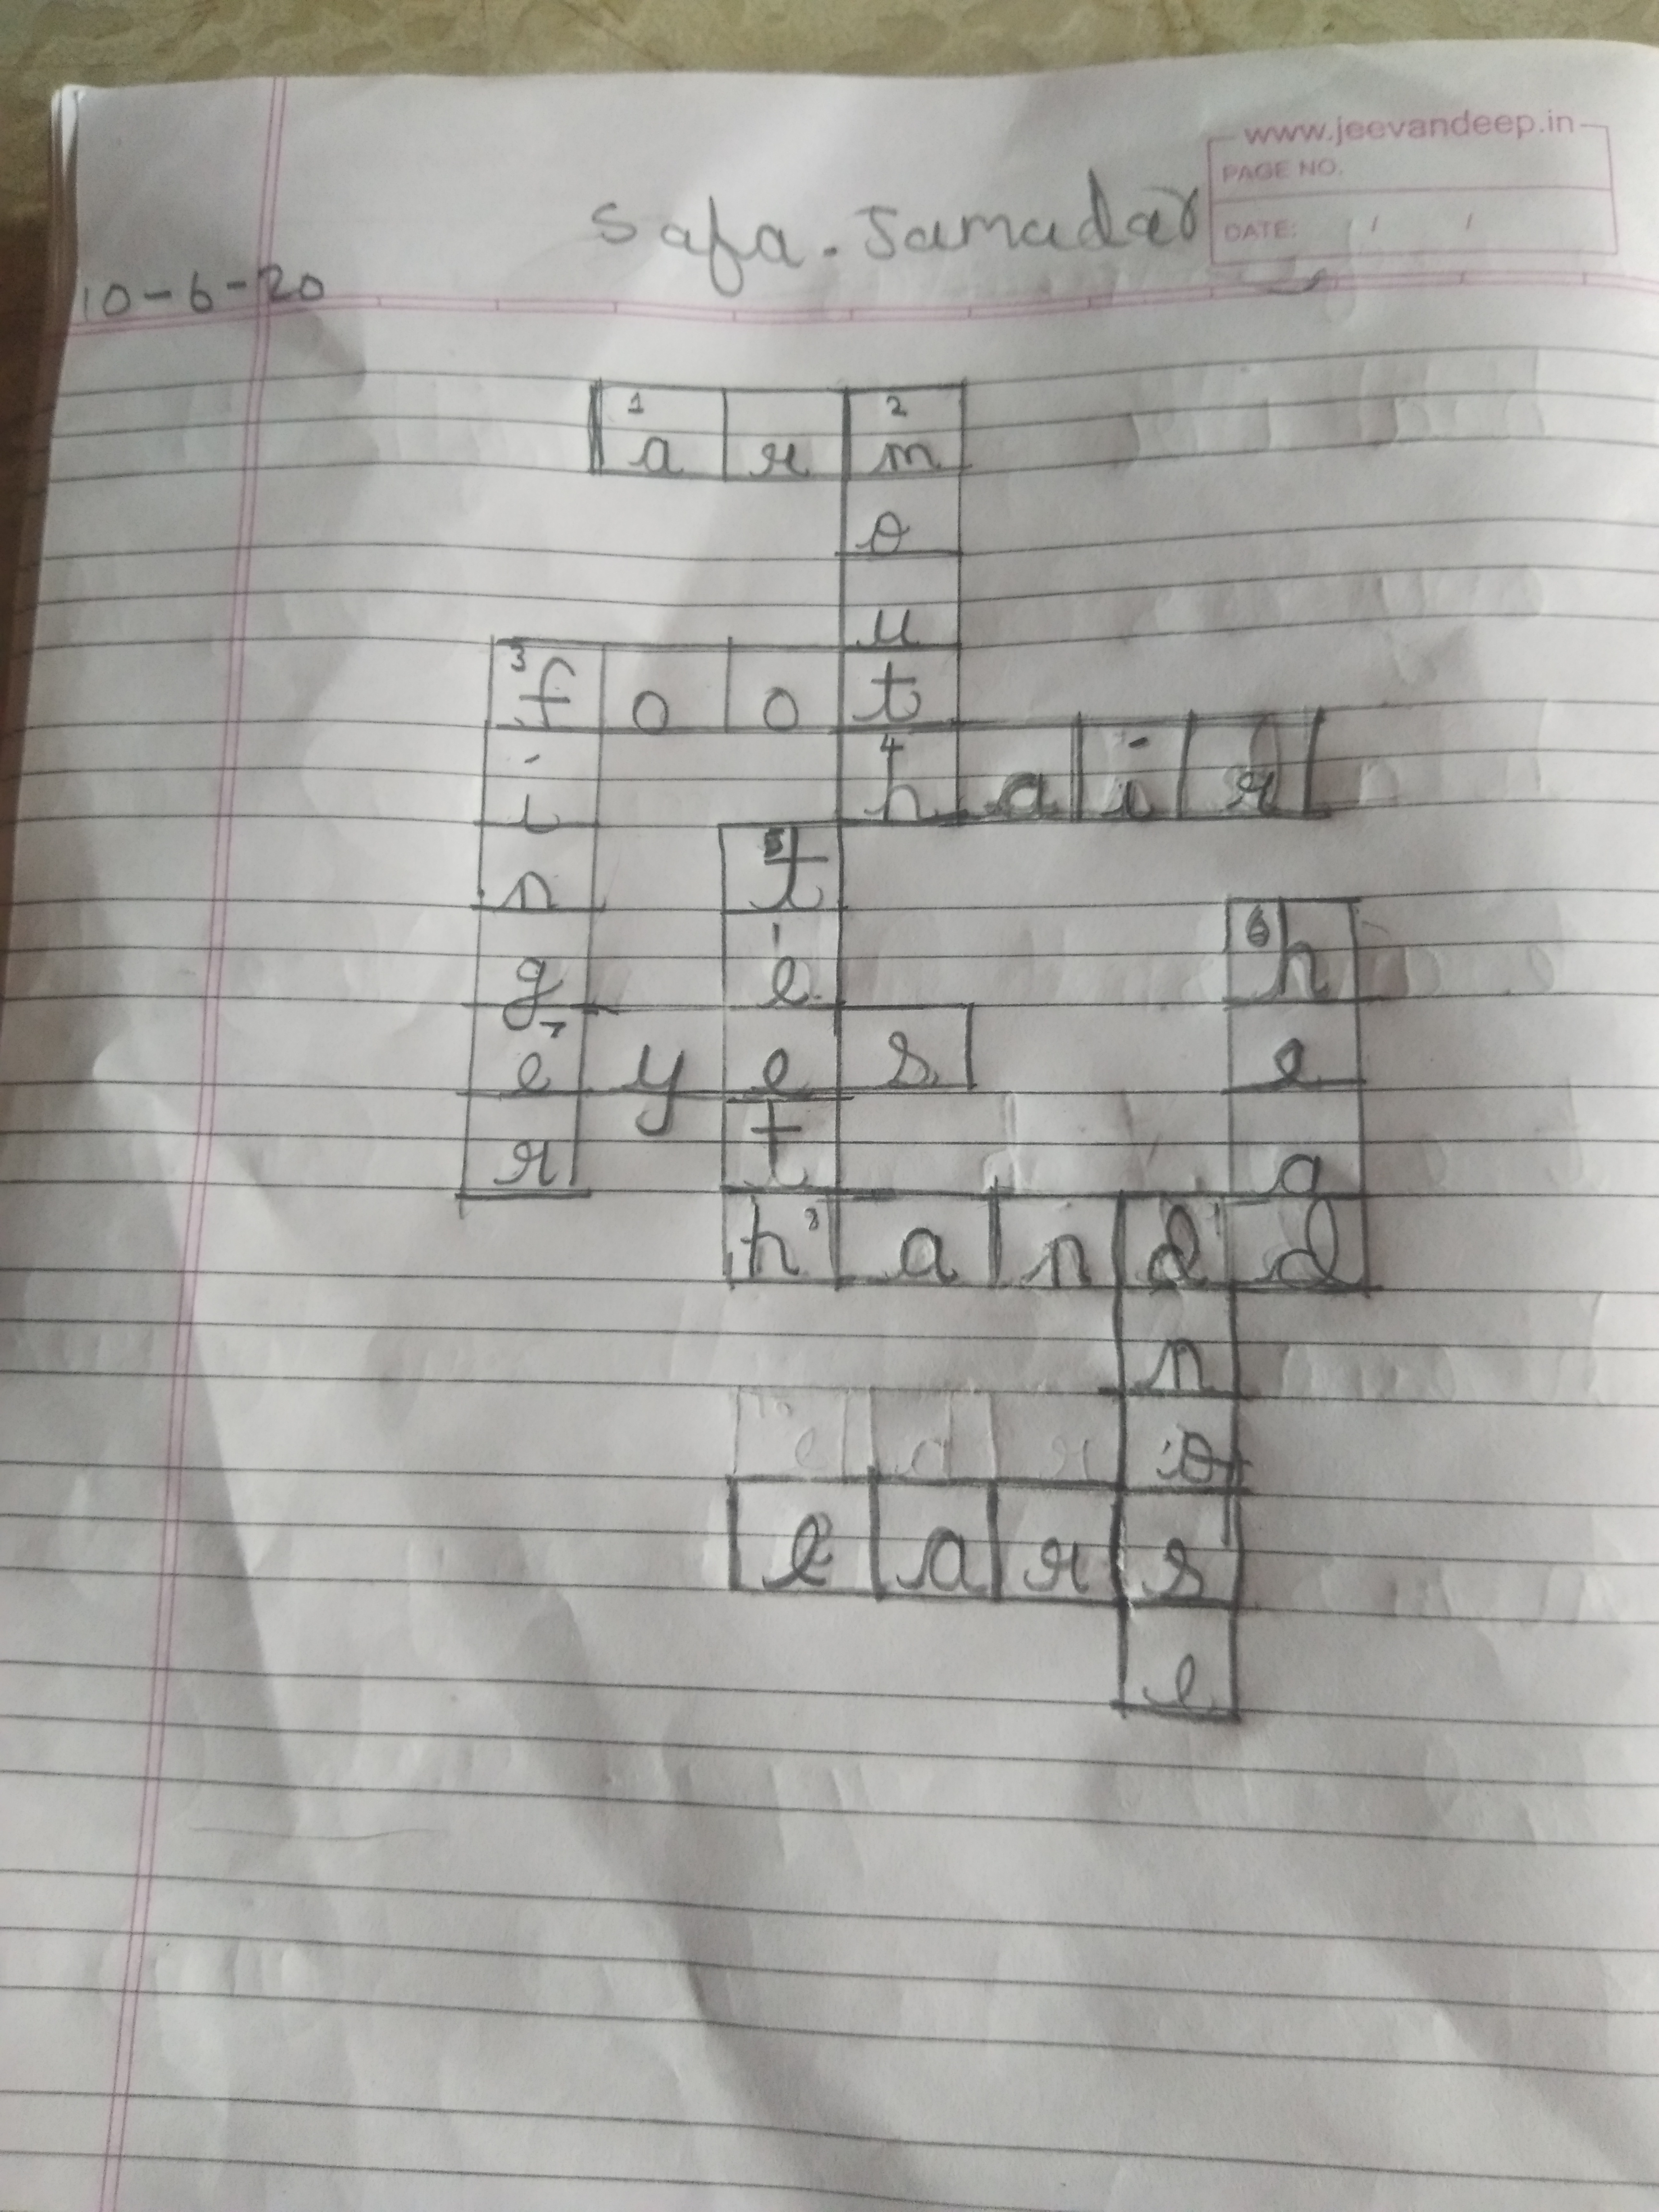 www.jeevandeep.in
PAGE NO.
Safa. Jamadar
DATE: / /
10-6-20
1 a r 2 m
o
u
3 f o o t
i 4 h a i r
n 5 t
g e 6 h
7 e y e s e
r t a
h 8 a n d d
n
o
e a r s
e